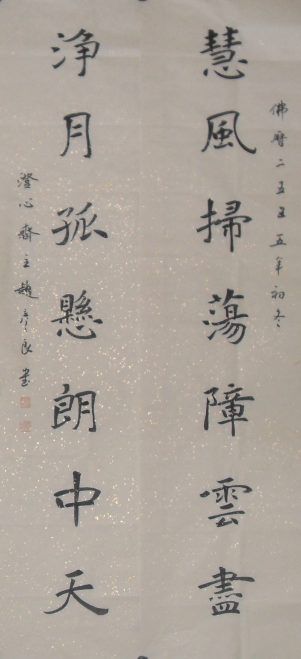 佛曆二五五五年初冬
慧風掃蕩障雲盡
淨月孤懸朗中天
澄心齋主趙彥良書